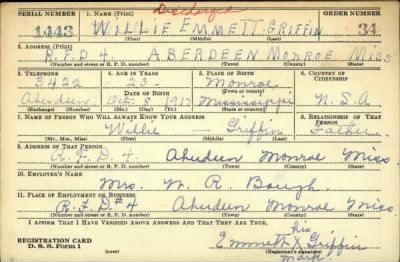 Discharged
SERIAL NUMBER 1. NAME (Print) ORDER NUMBER
1443 WILLIE EMMETT GRIFFIN 34
(First) (Middle) (Last)
2. ADDRESS (Print)
R.F.D 4 ABERDEEN MONROE MISS
(Number and street or R. F. D. number) (Town) (County) (State)
3. TELEPHONE 4. AGE IN YEARS 5. PLACE OF BIRTH 6. COUNTRY OF CITIZENSHIP
3422 23 Monroe
(Town or county)
DATE OF BIRTH
Aberdeen Oct. 8 1917 Mississippi U.S.A
(Exchange) (Number) (Mo.) (Day) (Yr.) (State or country)
7. NAME OF PERSON WHO WILL ALWAYS KNOW YOUR ADDRESS 8. RELATIONSHIP OF THAT PERSON
Willie — Griffin Father
(Mr., Mrs., Miss) (First) (Middle) (Last)
9. ADDRESS OF THAT PERSON
R.F.D 4 Aberdeen Monroe Miss
(Number and street or R. F. D. number) (Town) (County) (State)
10. EMPLOYER'S NAME
Mrs. W. R. Baugh
11. PLACE OF EMPLOYMENT OR BUSINESS
R.F.D #4 Aberdeen Monroe Miss
(Number and street or R. F. D. number) (Town) (County) (State)
I AFFIRM THAT I HAVE VERIFIED ABOVE ANSWERS AND THAT THEY ARE TRUE.
his
REGISTRATION CARD Emmett X Griffin
D. S. S. Form 1 (over) (Registrant's signature)
mark